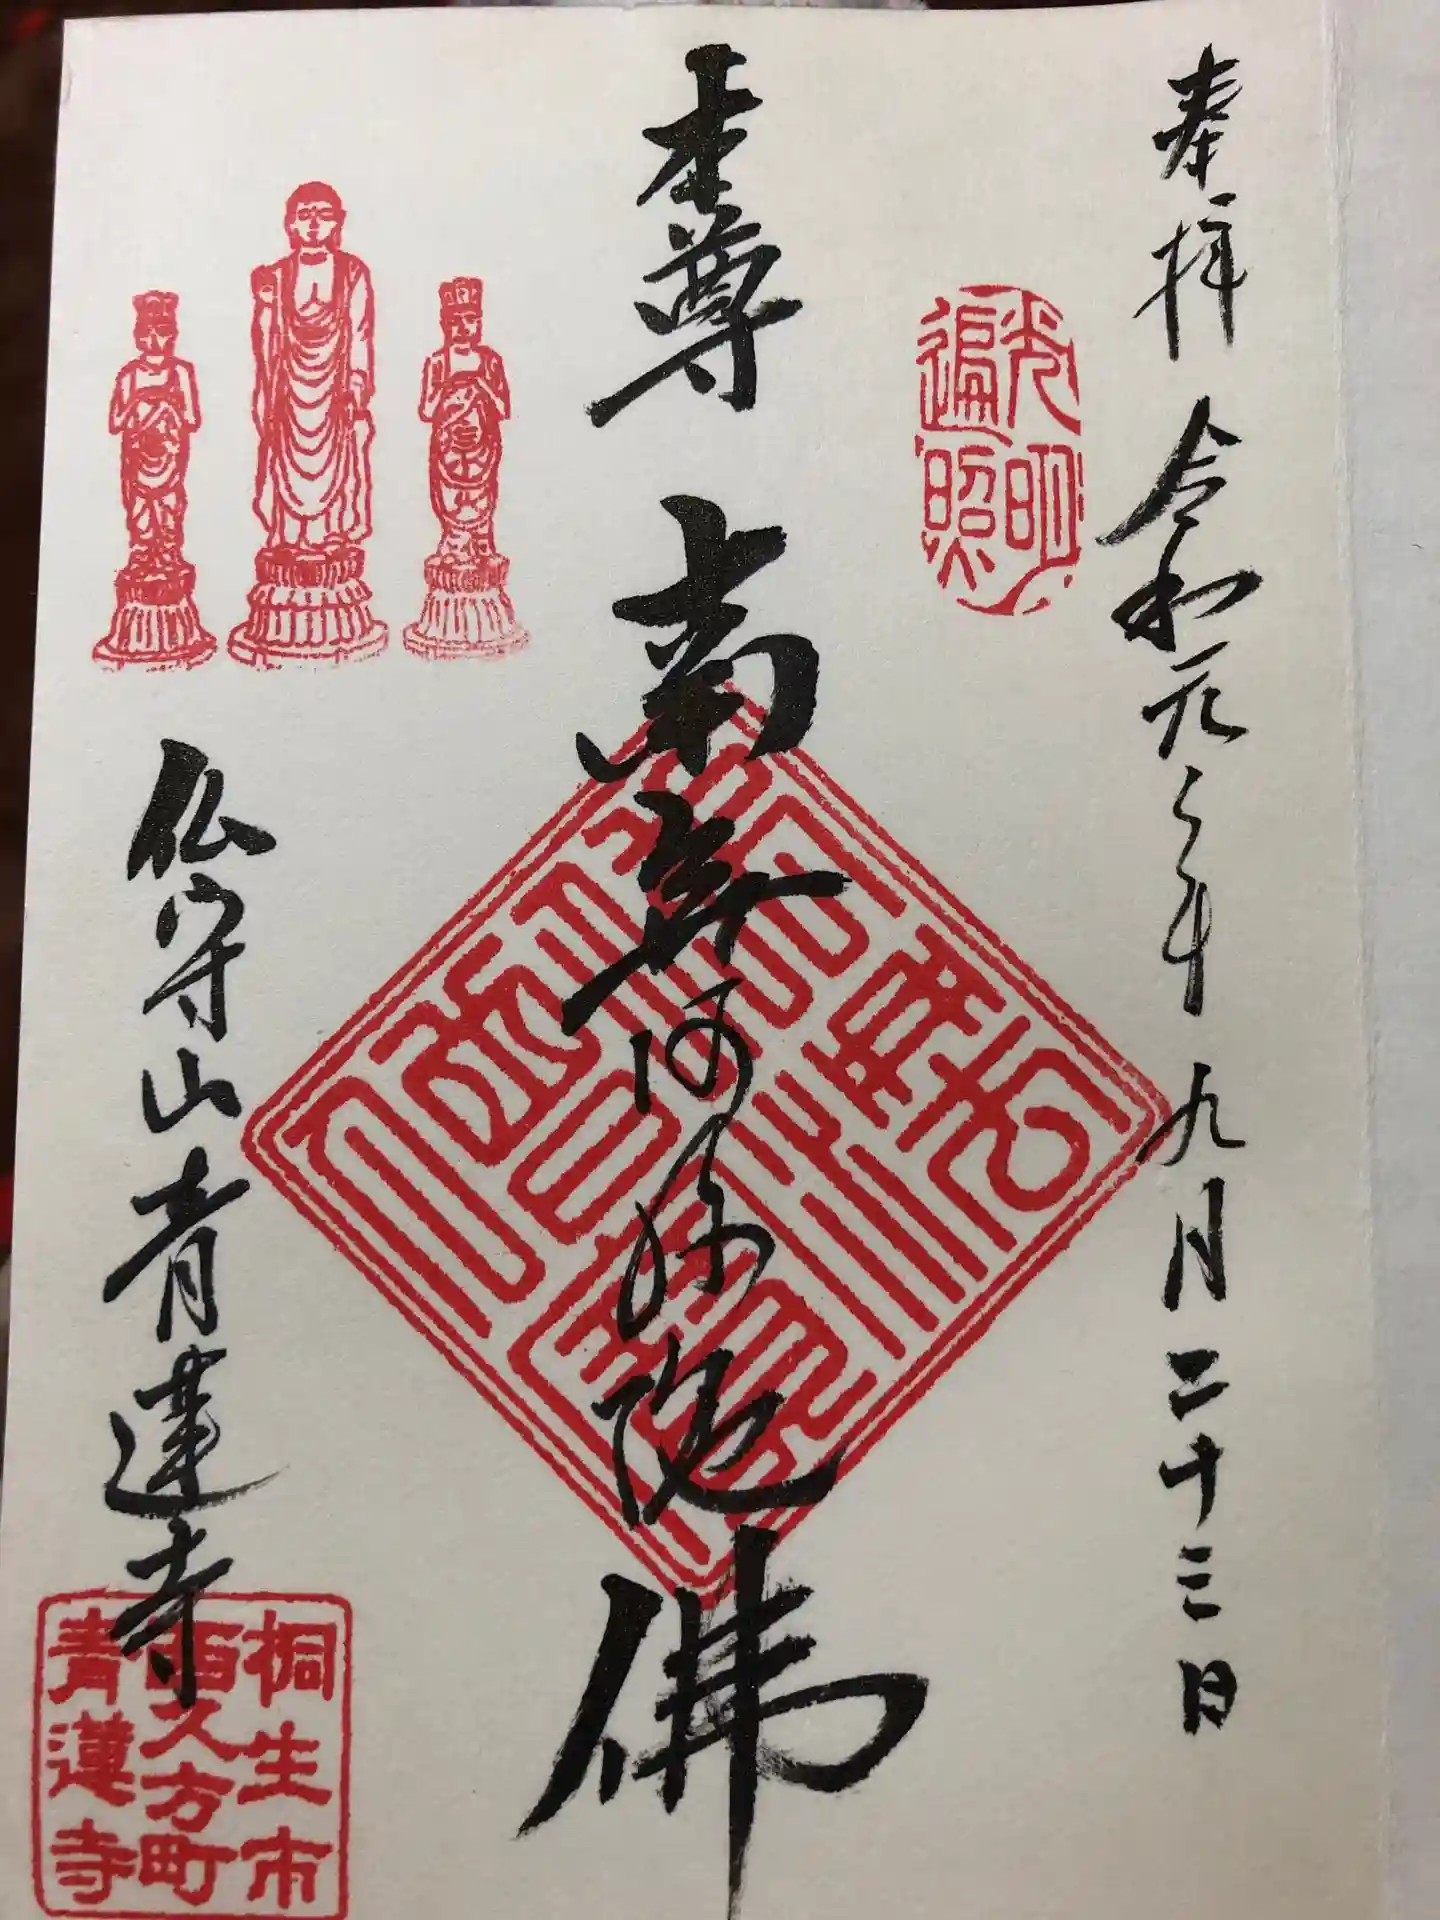 奉拝 令和元年 九月二十三日
光明
遍照
本尊 南無阿弥陀佛
仏守山青蓮寺
桐生市
西久方町
青蓮寺